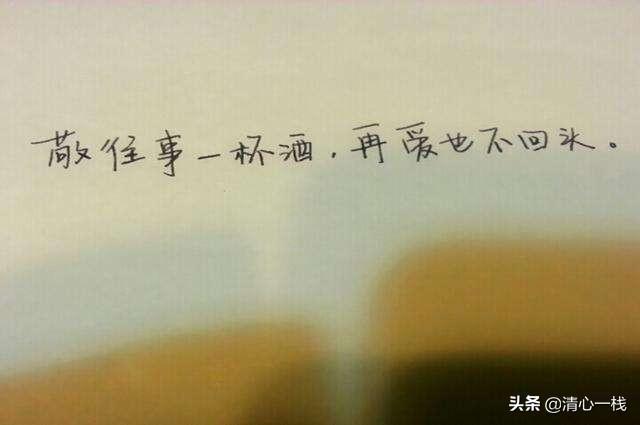 敬往事一杯酒，再爱也不回头。
头条 @清心一栈